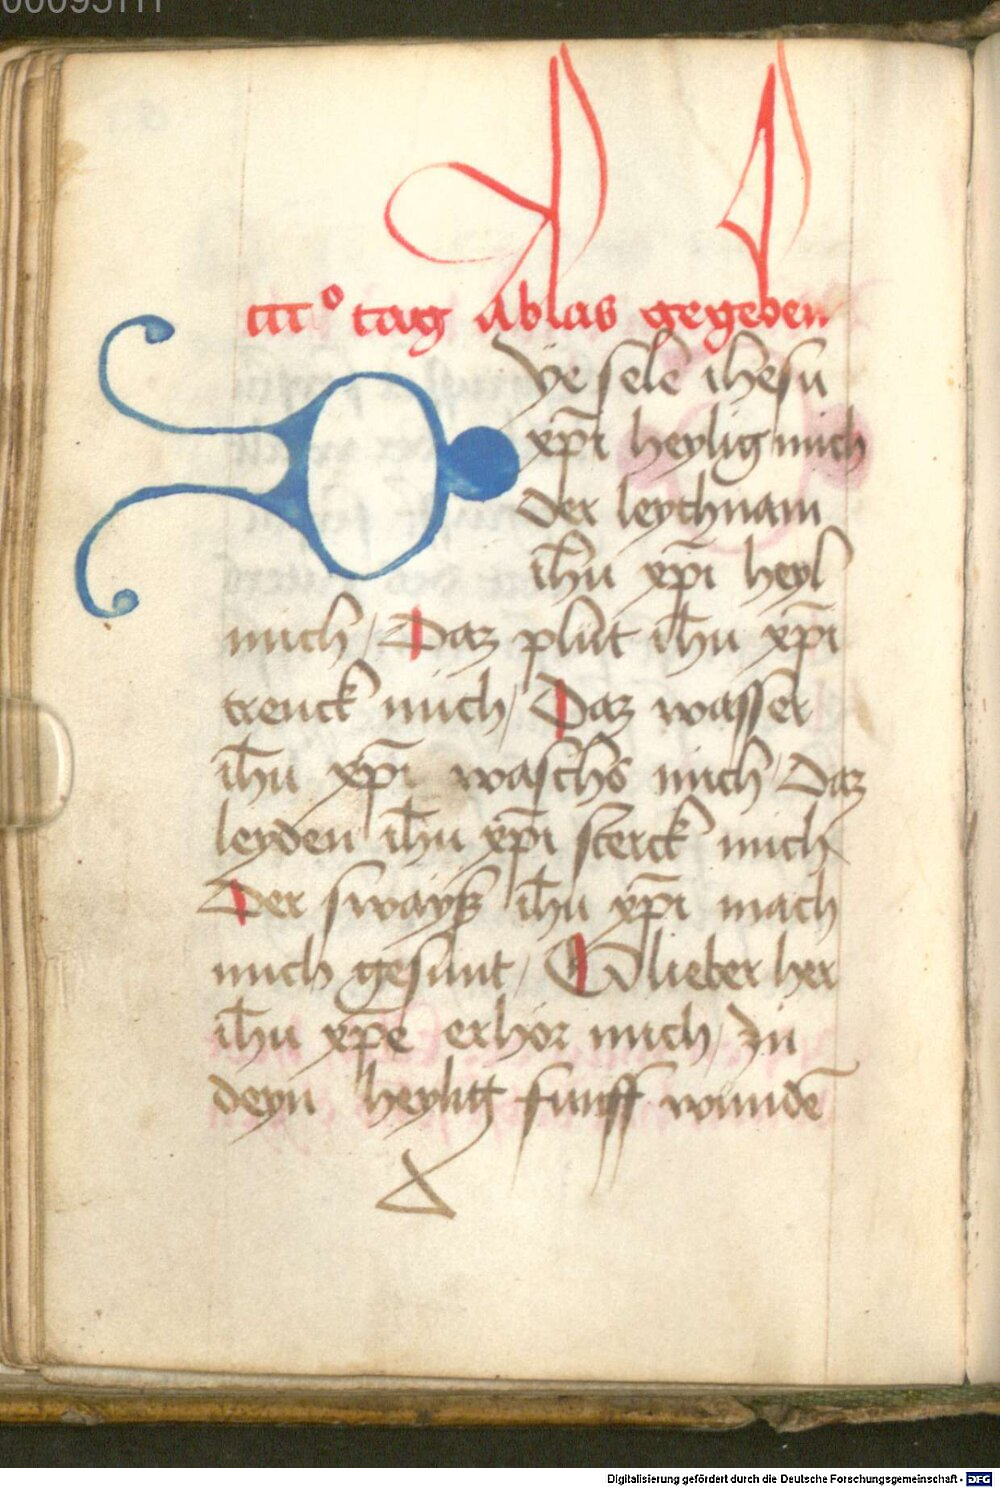 00095111
ccco tag ablas gegeben
Dye sele ihesu
xp̄i heylig mich
der leychnam
ih̄u xp̄i heyl
mich / Daz plut ih̄u xp̄i
trenck mich / Daz wasser
ih̄u xp̄i waschs mich / Daz
leyden ih̄u xp̄i sterck mich
Der swayß ih̄u xp̄i mach
mich gesunt / O lieber her
ih̄u xp̄e erhör mich / zu
deyn heylig funff wundē
Digitalisierung gefördert durch die Deutsche Forschungsgemeinschaft - DFG